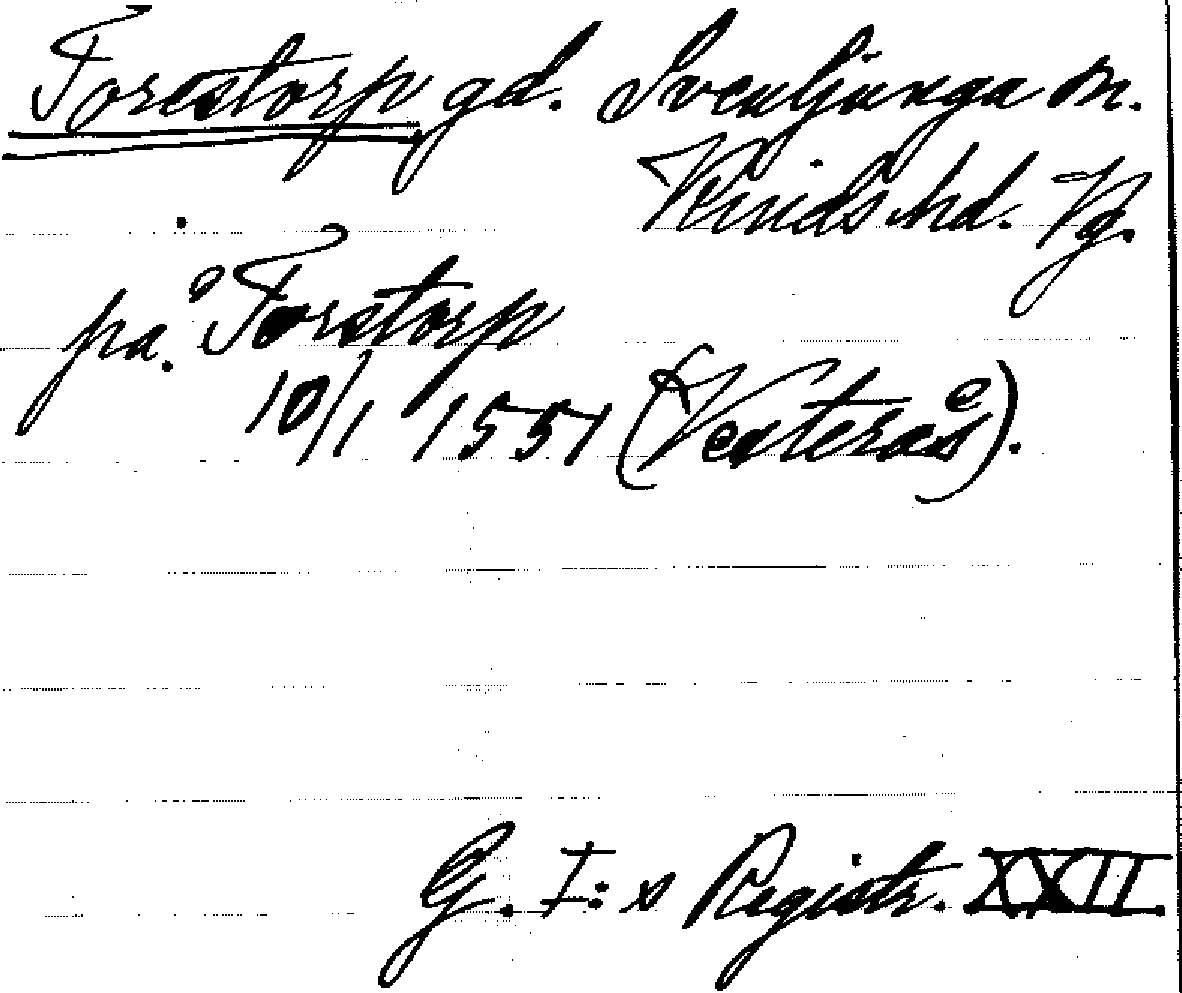 Torestorp gd. Svenljunga sn.
Kinds hd. Vg.
på Torstorp
10/1 1551 (Vesterås).
G. I:s Registr. XXII.